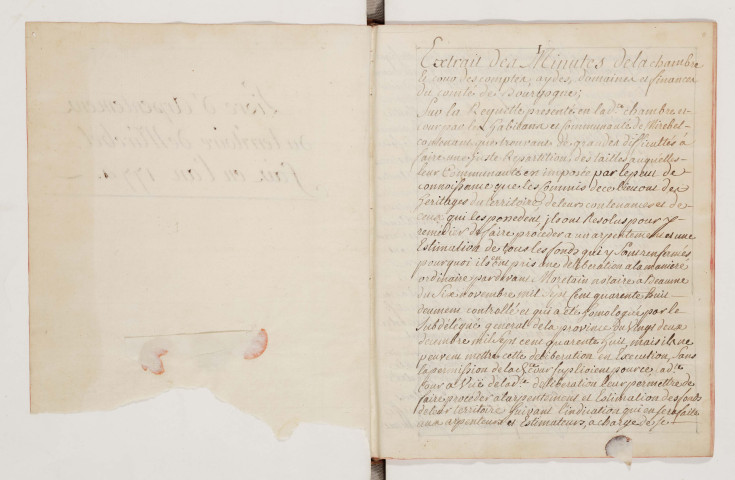 Livre d'arpentement
du territoire de Mirebel
fait en l'an 177
1
Extrait des Minutes de la chambre
& cour des comptes, aydes, domaines et finances
du comté de Bourgogne;
Sur la Requette presenté en lad.e chambre et
cour par les habitans et communauté de Mirebel
contenant que trouvans de grandes difficultés a
faire une juste Repartition des tailles auquelles
leur Communauté est imposée par le peu de
connoissance que les commis de ce lieu ont des
heritages du territoire, de leurs contenances et de
ceux qui les possedent, jls ont Resolus pour y
remedier de faire proceder a un arpentement et une
Estimation de tous les fonds qui y sont renfermés
pourquoi ils ont pris une deliberation a la maniere
ordinaire pardevant Moretain notaire a Beaune
du Six novembre mil Sept Cent quarente huit
deument controllé et qui a eté homologué par le
Subdélégué general de la province du vingt deux
decembre mil Sept cent quarente huit, mais ils ne
peuvent mettre cette deliberation en Execution, Sans
la permission de la Cour supplioient pource, a d.te
Cour a vue de lad.te deliberation leur permettre de
faire proceder a l'arpentement et Estimation des fonds
de leur territoire Suivant l'indication qui en sera faite
aux arpenteurs et Estimateurs, a charge de se